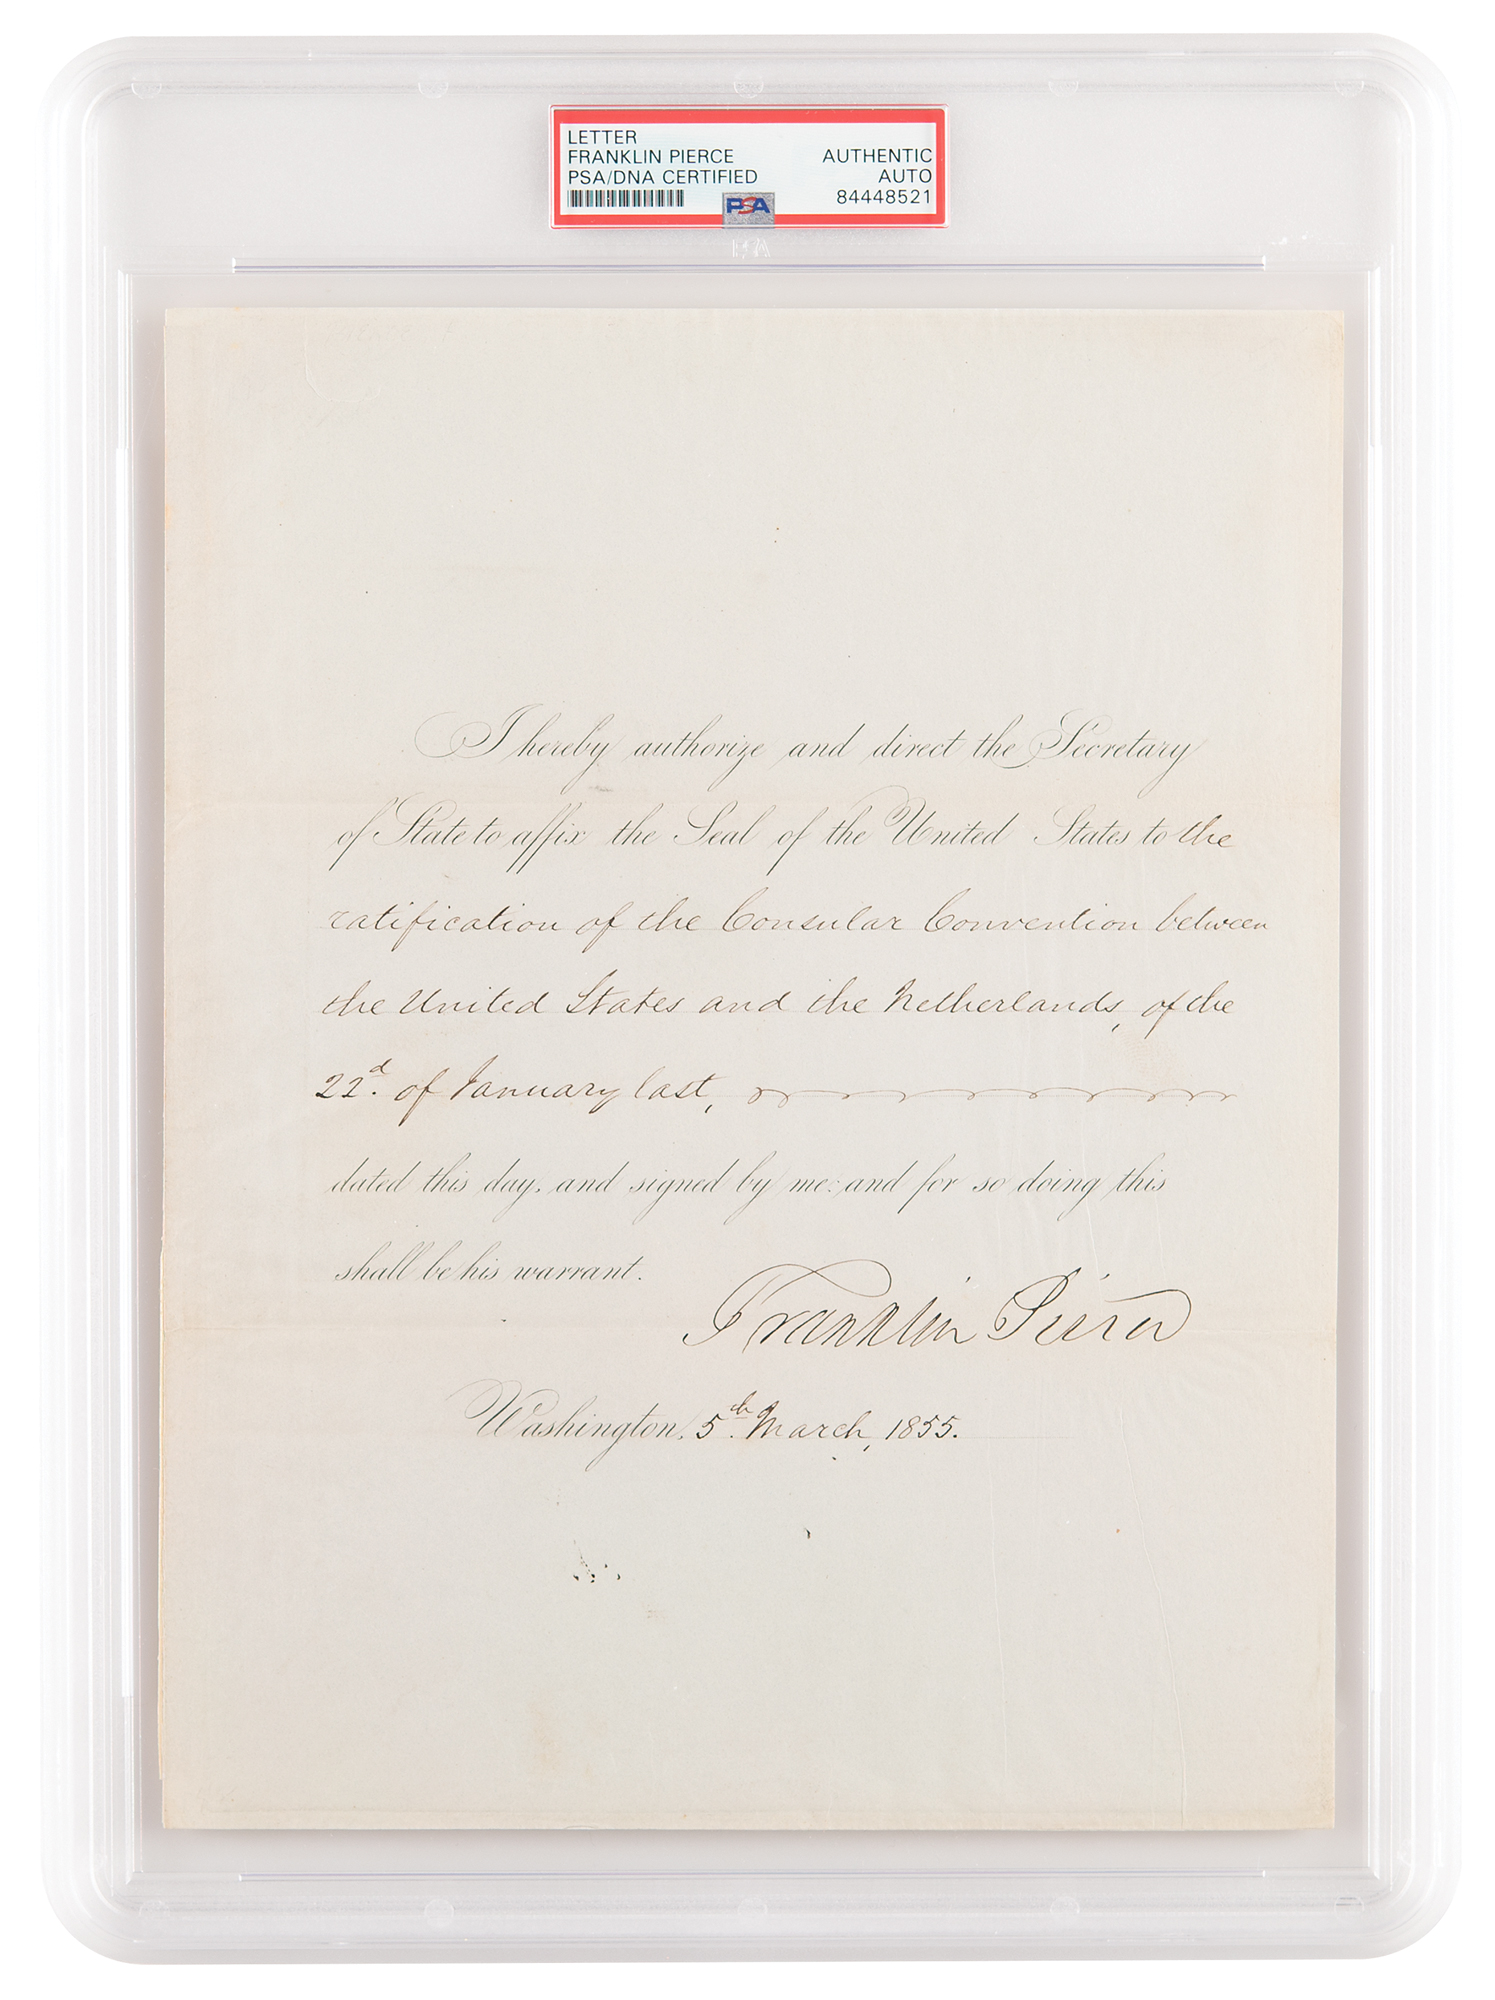 LETTER
FRANKLIN PIERCE AUTHENTIC
PSA/DNA CERTIFIED AUTO
PSA 84448521
PSA
I hereby authorize and direct the Secretary
of State to affix the Seal of the United States to the
ratification of the Consular Convention between
the United States and the Netherlands, of the
22d. of January last,
dated this day, and signed by me: and for so doing this
shall be his warrant.
Franklin Pierce
Washington, 5th. March, 1855.